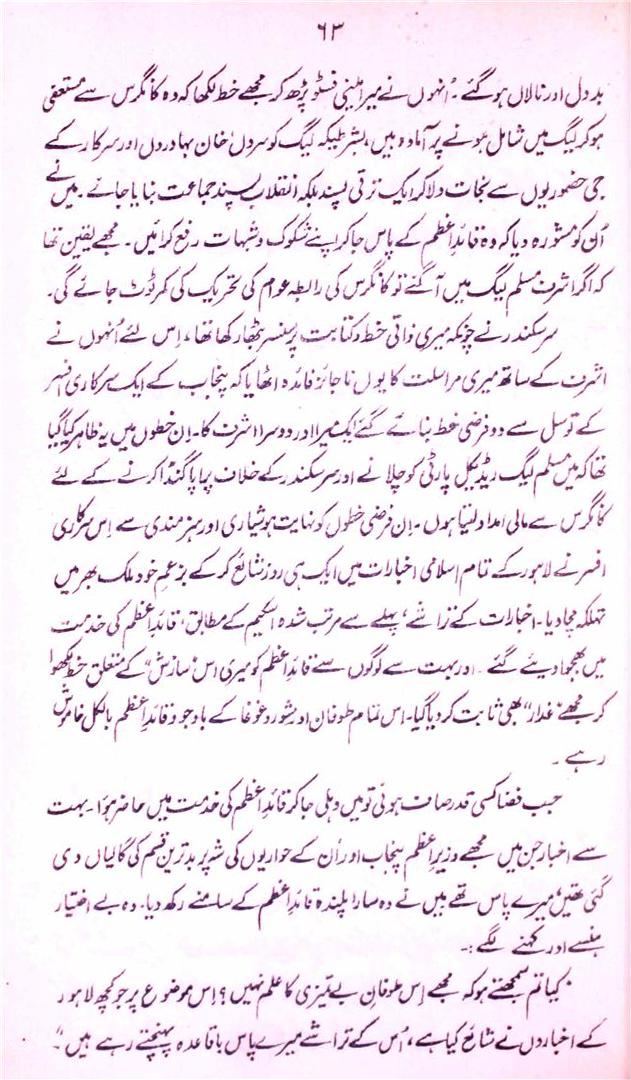 ۶۳
بددل اور نالاں ہو گئے۔ اُنہوں نے میرا مینی فسٹو پڑھ کر مجھے خط لکھا کہ وہ کانگرس سے مستعفی
ہو کر لیگ میں شامل ہونے پر آمادہ ہیں، بشرطیکہ لیگ کو سروں، خان بہادروں اور سرکار کے
جی حضوریوں سے نجات دلا کر ایک ترقی پسند بلکہ انقلاب پسند جماعت بنایا جائے۔ میں نے
اُن کو مشورہ دیا کہ وہ قائدِ اعظم کے پاس جا کر اپنے شکوک و شبہات رفع کرائیں۔ مجھے یقین تھا
کہ اگر اشرف مسلم لیگ میں آ گئے تو کانگرس کی رابطہ عوام کی تحریک کی کمر ٹوٹ جائے گی۔
سر سکندر نے چونکہ میری ذاتی خط و کتابت پر سنسر بٹھا رکھا تھا، اِس لئے اُنہوں نے
اشرف کے ساتھ میری مراسلت کا یوں ناجائز فائدہ اٹھایا کہ پنجاب کے ایک سرکاری افسر
کے توسل سے دو فرضی خط بنائے گئے ایک میرا اور دوسرا اشرف کا۔ اِن خطوں میں یہ ظاہر کیا گیا
تھا کہ میں مسلم لیگ ریڈیکل پارٹی کو چلانے اور سر سکندر کے خلاف پراپاگنڈا کرنے کے لئے
کانگرس سے مالی امداد لیتا ہوں۔ اِن فرضی خطوں کو نہایت ہوشیاری اور ہنرمندی سے اِس سرکاری
افسر نے لاہور کے تمام اسلامی اخبارات میں ایک ہی روز شائع کر کے بزعمِ خود ملک بھر میں
تہلکہ مچا دیا۔ اخبارات کے تراشے، پہلے سے مرتب شدہ اسکیم کے مطابق، قائدِ اعظم کی خدمت
میں بھجوا دیئے گئے۔ اور بہت سے لوگوں سے قائدِ اعظم کو میری اس "سازش" کے متعلق خط لکھوا
کر مجھے "غدار" بھی ثابت کر دیا گیا۔ اس تمام طوفان اور شور و غوغا کے باوجود قائدِ اعظم بالکل خاموش
رہے۔
جب فضا کسی قدر صاف ہوئی تو میں دہلی جا کر قائدِ اعظم کی خدمت میں حاضر ہوا۔ بہت
سے اخبار جن میں مجھے وزیرِ اعظم پنجاب اور اُن کے حواریوں کی شہ پر بدترین قسم کی گالیاں دی
گئی تھیں میرے پاس تھے میں نے وہ سارا پلندہ قائدِ اعظم کے سامنے رکھ دیا۔ وہ بے اختیار
ہنسے اور کہنے لگے:۔
"کیا تم سمجھتے ہو کہ مجھے اِس طوفانِ بے تمیزی کا علم نہیں؟ اِس موضوع پر جو کچھ لاہور
کے اخباروں نے شائع کیا ہے، اُس کے تراشے میرے پاس باقاعدہ پہنچتے رہے ہیں"۔